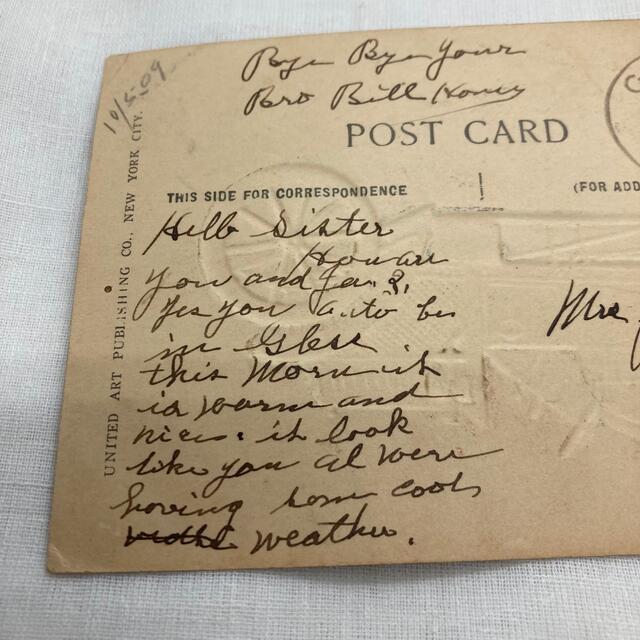 10/5-09
Bye Bye Your
Bro Bill Honey
POST CARD
THIS SIDE FOR CORRESPONDENCE
(FOR ADD
UNITED ART PUBLISHING CO., NEW YORK CITY.
Hello Sister
How are
you and Ja.?
Yes you auto be
in
this Morn it
is warm and
nice. it look
like you al were
having som cool
weather.
Mrs